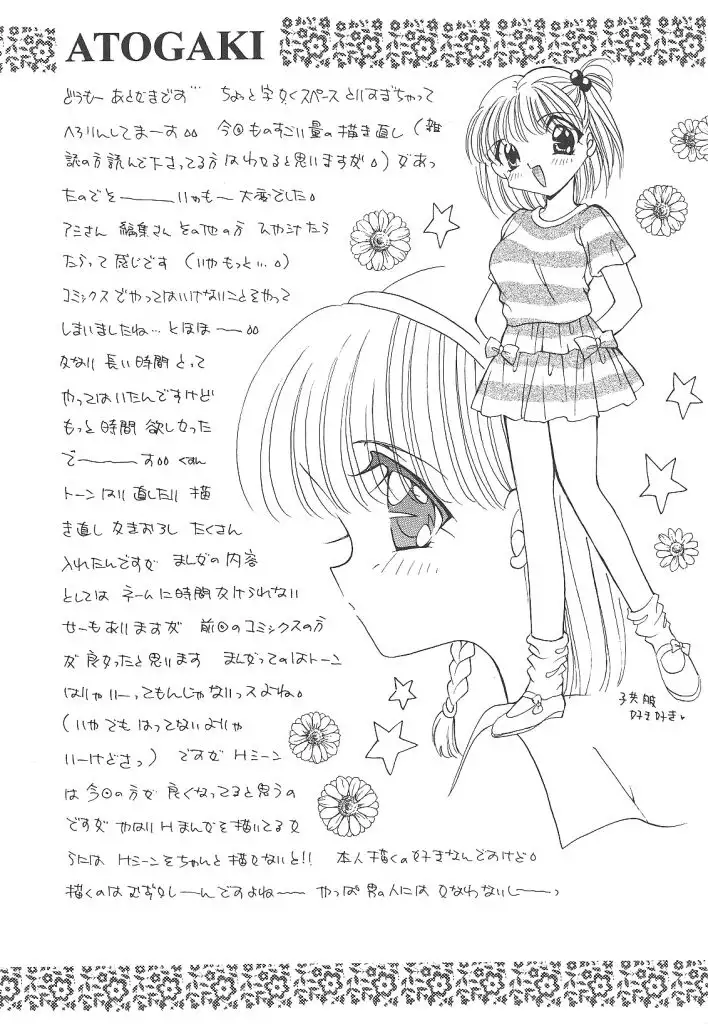 ATOGAKI
どうもー あとがきです… ちょっと字かくスペースとりすぎちゃって
へろりんしてまーす。。 今回ものすごい量の描き直し（雑
誌の方読んで下さってる方はわかると思いますが。）があっ
たのでそ———いやも～ 大変でした。
アミさん 編集さん その他の方 ひやひやたら
たらって感じです（いやもっと…。）
コミックスでやってはいけないことをやって
しまいましたね… とほほ——。。
かなり 長い時間とって
やってはいたんですけど
もっと時間 欲しかった
で———す。。 くすん
トーンはり直したり 描
き直し かきおろし たくさん
入れたんですが まんがの内容
としては ネームに時間かけられない
せーもありますが 前回のコミックスの方
が良かったと思います まんがってのはトーン
はりゃいーってもんじゃないっスよね。
（いやでも はってないよりゃ
いーけどさっ） ですが Hシーン
は 今回の方が 良くなってると思うの
ですが やはり Hまんがを描いてるか
らには Hシーンをちゃんと描かないと!! 本人描くの好きなんですけど。
描くのは むずかしーんですよね—— やっぱ 男の人には かなわないし——っ
子供服
好き好き